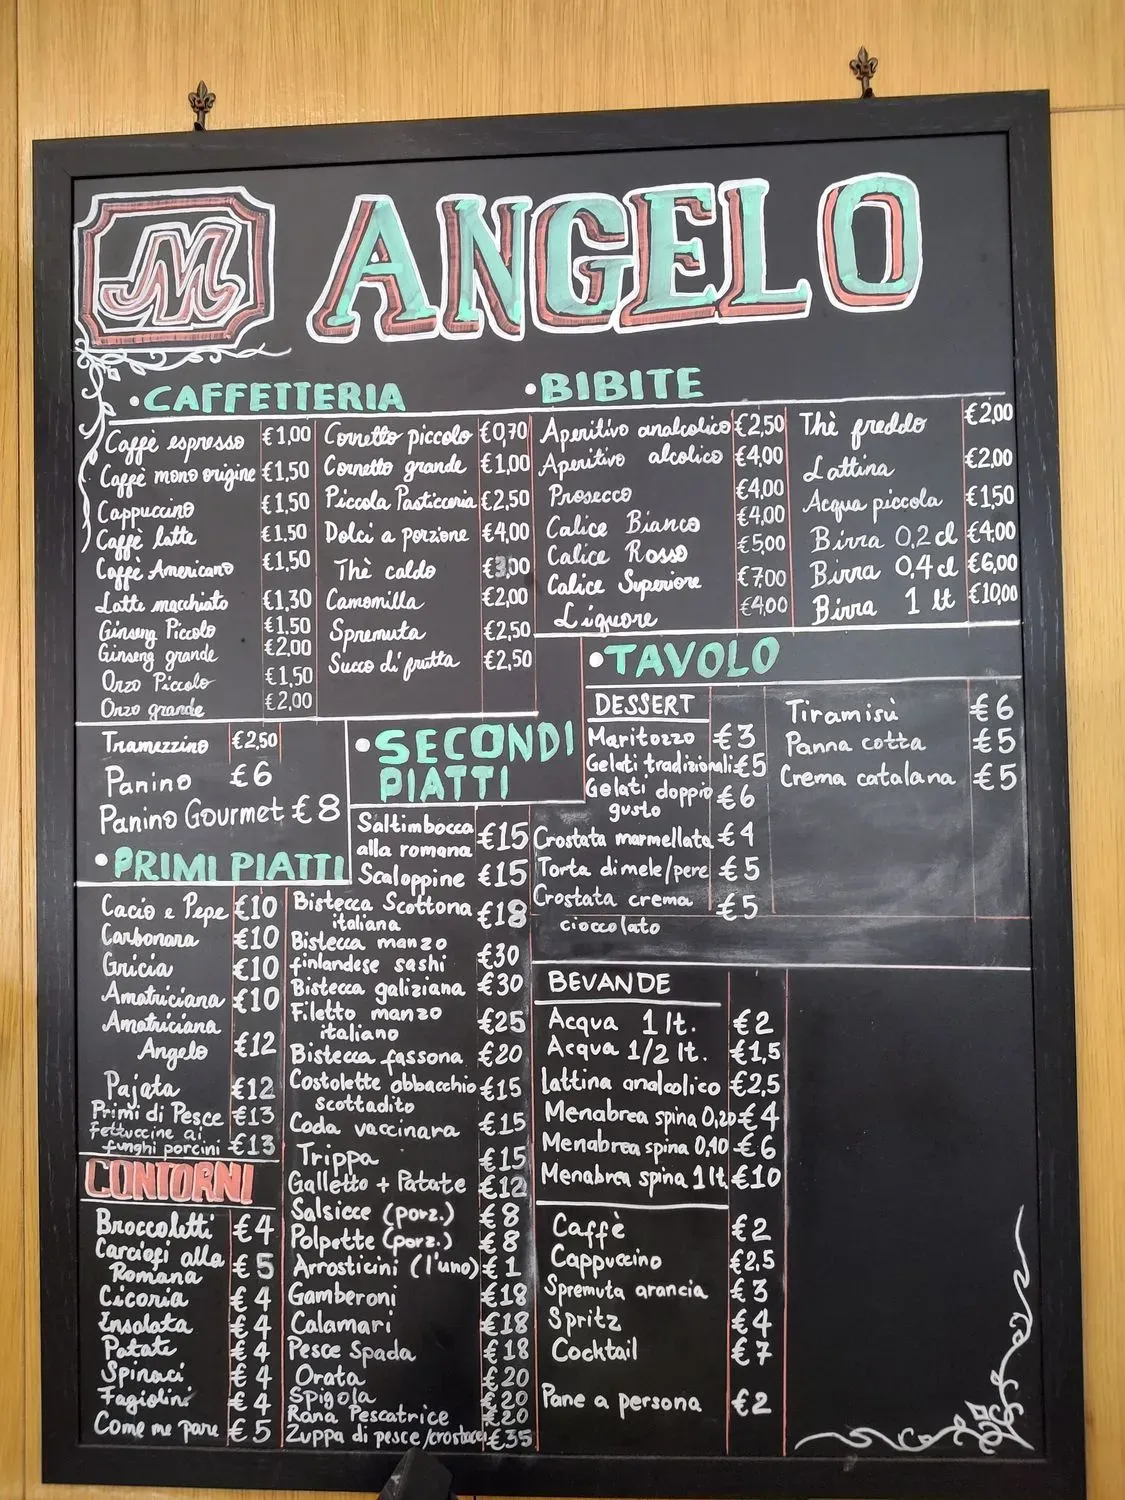 M ANGELO
• CAFFETTERIA
Caffè espresso €1,00
Caffè mono origine €1,50
Cappuccino €1,50
Caffè latte €1,50
Caffè Americano €1,50
Latte macchiato €1,30
Ginseng Piccolo €1,50
Ginseng grande €2,00
Orzo Piccolo €1,50
Orzo grande €2,00
Cornetto piccolo €0,70
Cornetto grande €1,00
Piccola Pasticceria €2,50
Dolci a porzione €4,00
Thè caldo €3,00
Camomilla €2,00
Spremuta €2,50
Succo di frutta €2,50
• BIBITE
Aperitivo analcolico €2,50
Aperitivo alcolico €4,00
Prosecco €4,00
Calice Bianco €4,00
Calice Rosso €5,00
Calice Superiore €7,00
Liquore €4,00
Thè freddo €2,00
Lattina €2,00
Acqua piccola €1,50
Birra 0,2 cl €4,00
Birra 0,4 cl €6,00
Birra 1 lt €10,00
Tramezzino €2,50
Panino €6
Panino Gourmet €8
• PRIMI PIATTI
Cacio e Pepe €10
Carbonara €10
Gricia €10
Amatriciana €10
Amatriciana
Angelo €12
Pajata €12
Primi di Pesce €13
Fettuccine ai
funghi porcini €13
CONTORNI
Broccoletti €4
Carciofi alla
Romana €5
Cicoria €4
Insalata €4
Patate €4
Spinaci €4
Fagiolini €4
Come me pare €5
• SECONDI
PIATTI
Saltimbocca
alla romana €15
Scaloppine €15
Bistecca Scottona
italiana €18
Bistecca manzo
finlandese sashi €30
Bistecca galiziana €30
Filetto manzo
italiano €25
Bistecca fassona €20
Costolette abbacchio
scottadito €15
Coda vaccinara €15
Trippa €15
Galletto + Patate €12
Salsicce (porz.) €8
Polpette (porz.) €8
Arrosticini (l'uno) €1
Gamberoni €18
Calamari €18
Pesce Spada €18
Orata €20
Spigola €20
Rana Pescatrice €20
Zuppa di pesce/crostacei €35
• TAVOLO
DESSERT
Maritozzo €3
Gelati tradizionali €5
Gelati doppio
gusto €6
Crostata marmellata €4
Torta di mele/pere €5
Crostata crema
cioccolato €5
Tiramisù €6
Panna cotta €5
Crema catalana €5
BEVANDE
Acqua 1 lt. €2
Acqua 1/2 lt. €1,5
lattina analcolico €2,5
Menabrea spina 0,20 €4
Menabrea spina 0,40 €6
Menabrea spina 1 lt €10
Caffè €2
Cappuccino €2,5
Spremuta arancia €3
Spritz €4
Cocktail €7
Pane a persona €2